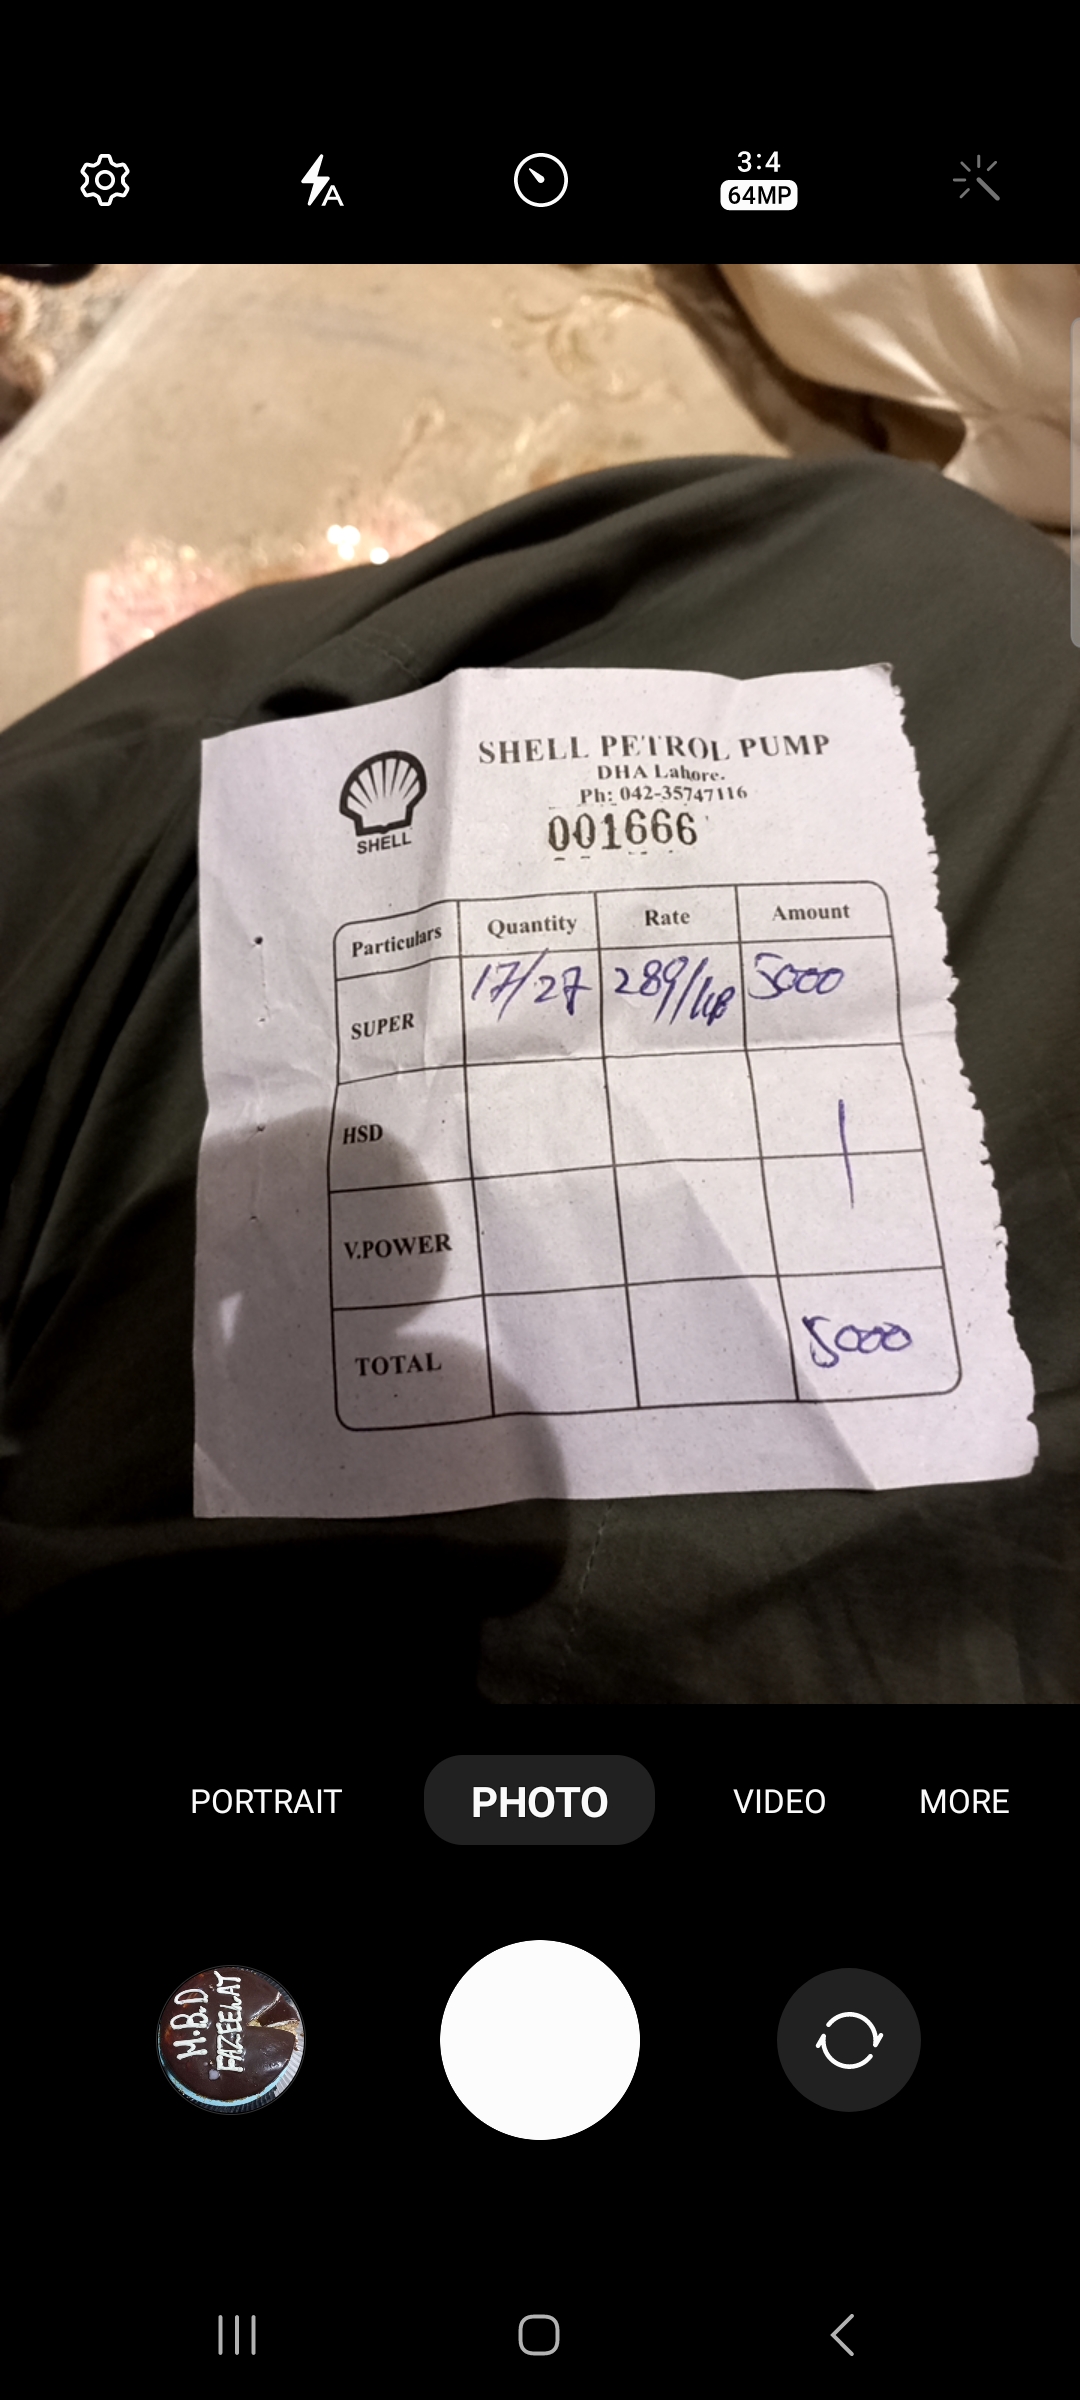 3:4
64MP
SHELL PETROL PUMP
DHA Lahore.
Ph: 042-35747116
001666
SHELL
Particulars Quantity Rate Amount
SUPER 17/27 289/ 5000
HSD
V.POWER
TOTAL 5000
PORTRAIT PHOTO VIDEO MORE
H.B.D
FAZEELAT